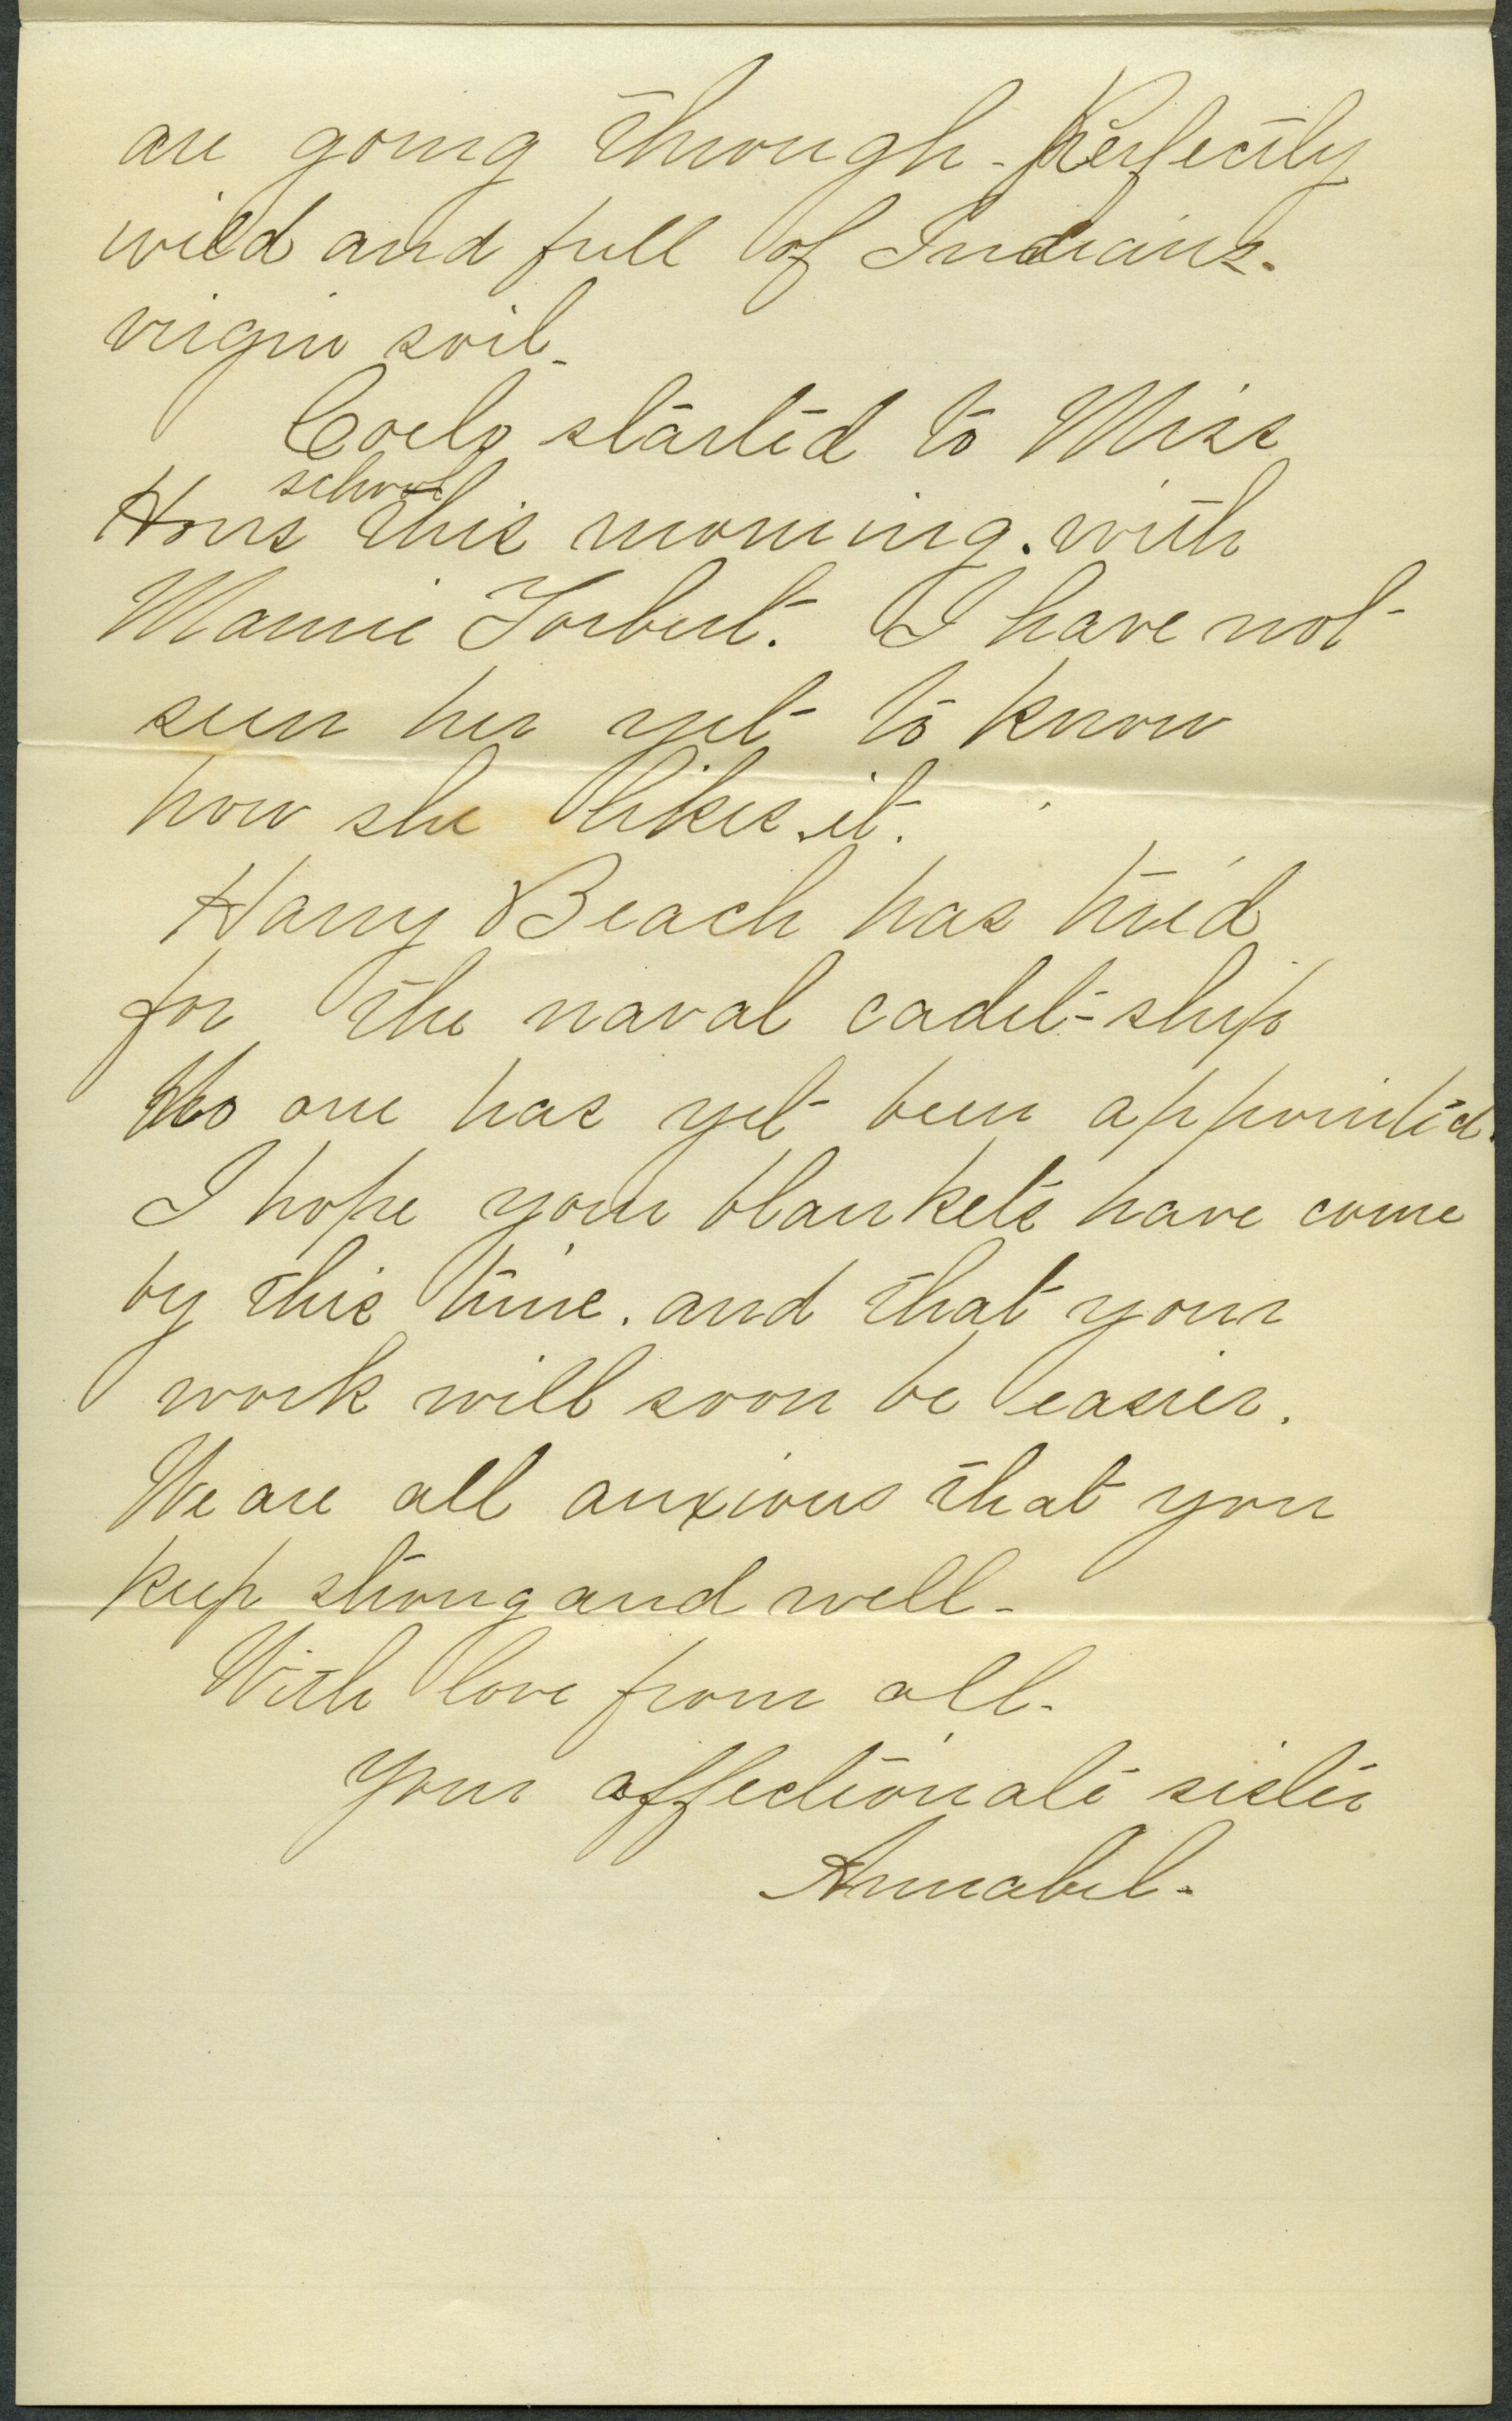 are going through - Perfectly
wild and full of Indians.
virgin soil -
Coely started to Miss
school
Horrs this morning. with
Mamie Torbert. I have not
seen her yet to know
how she likes it.
Harry Beach has tried
for the naval cadet-ship
No one has yet been appointed.
I hope your blankets have come
by this time. and that your
work will soon be easier.
We are all anxious that you
keep strong and well -
With love from all -
Your affectionate sister
Annabel -